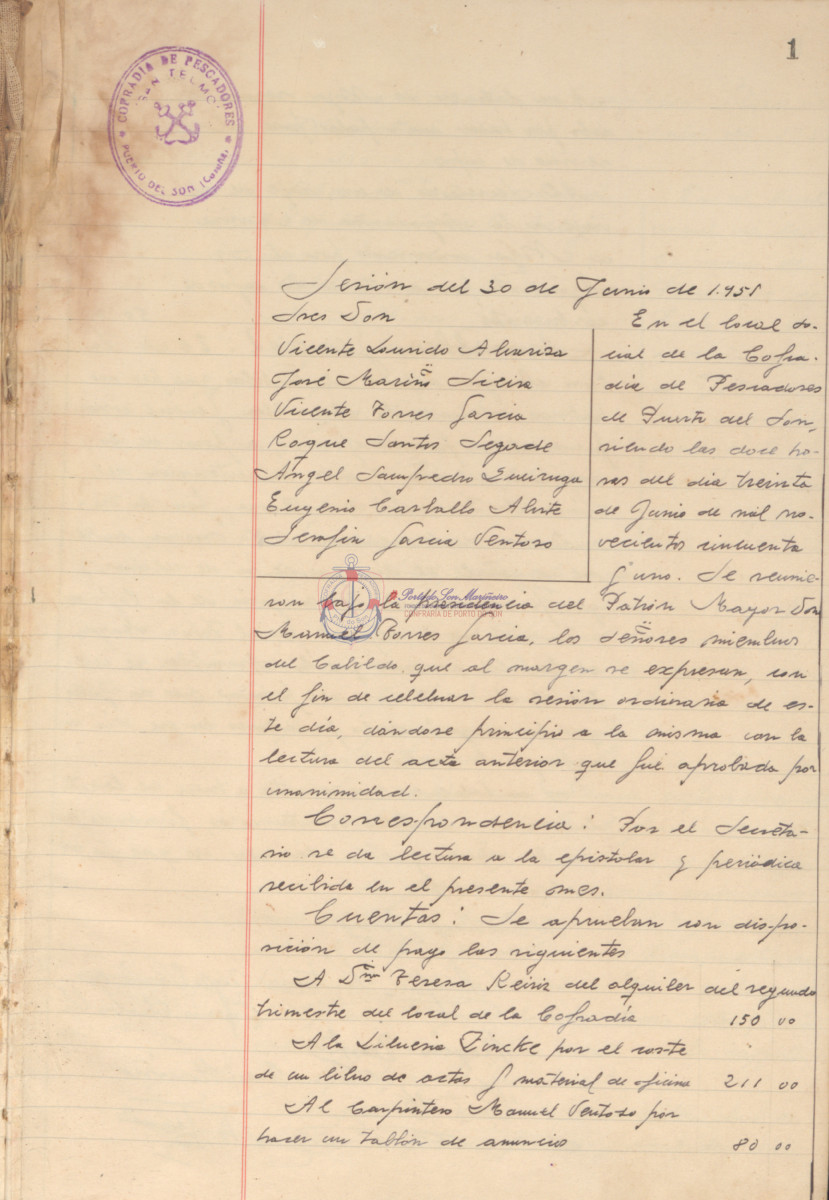 1
COFRADIA DE PESCADORES
SAN TELMO
PUERTO DEL SON (Coruña)
Sesión del 30 de Junio de 1.951
Sres Don
Vicente Lourido Alvariza
José Mariño Sieira
Vicente Torres Garcia
Roque Santos Segade
Angel Sampedro Queiruga
Eugenio Carballo Alvite
Serafin Garcia Ventoso
En el local so-
cial de la Cofra-
dia de Pescadores
de Puerto del Son,
siendo las doce ho-
ras del dia treinta
de Junio de mil no-
vecientos cincuenta
y uno. Se reunie-
ron bajo la Presidencia del Patrón Mayor Don
Manuel Torres Garcia, los señores miembros
del Cabildo que al margen se expresan, con
el fin de celebrar la sesión ordinaria de es-
te día, dándose principio a la misma con la
lectura del acta anterior que fué aprobada por
unanimidad.
Porto do Son Mariñeiro
CONFRARIA DE PORTO DO SON
Correspondencia: Por el Secreta-
rio se da lectura a la epistolar y periódica
recibida en el presente mes.
Cuentas: Se aprueban con dispo-
sición de pago las siguientes
A Dña Teresa Reiriz del alquiler del segundo
trimestre del local de la Cofradía 150 00
A la Libreria Zincke por el coste
de un libro de actas y material de oficina 211 00
Al Carpintero Manuel Ventoso por
hacer un tablón de anuncios 80 00